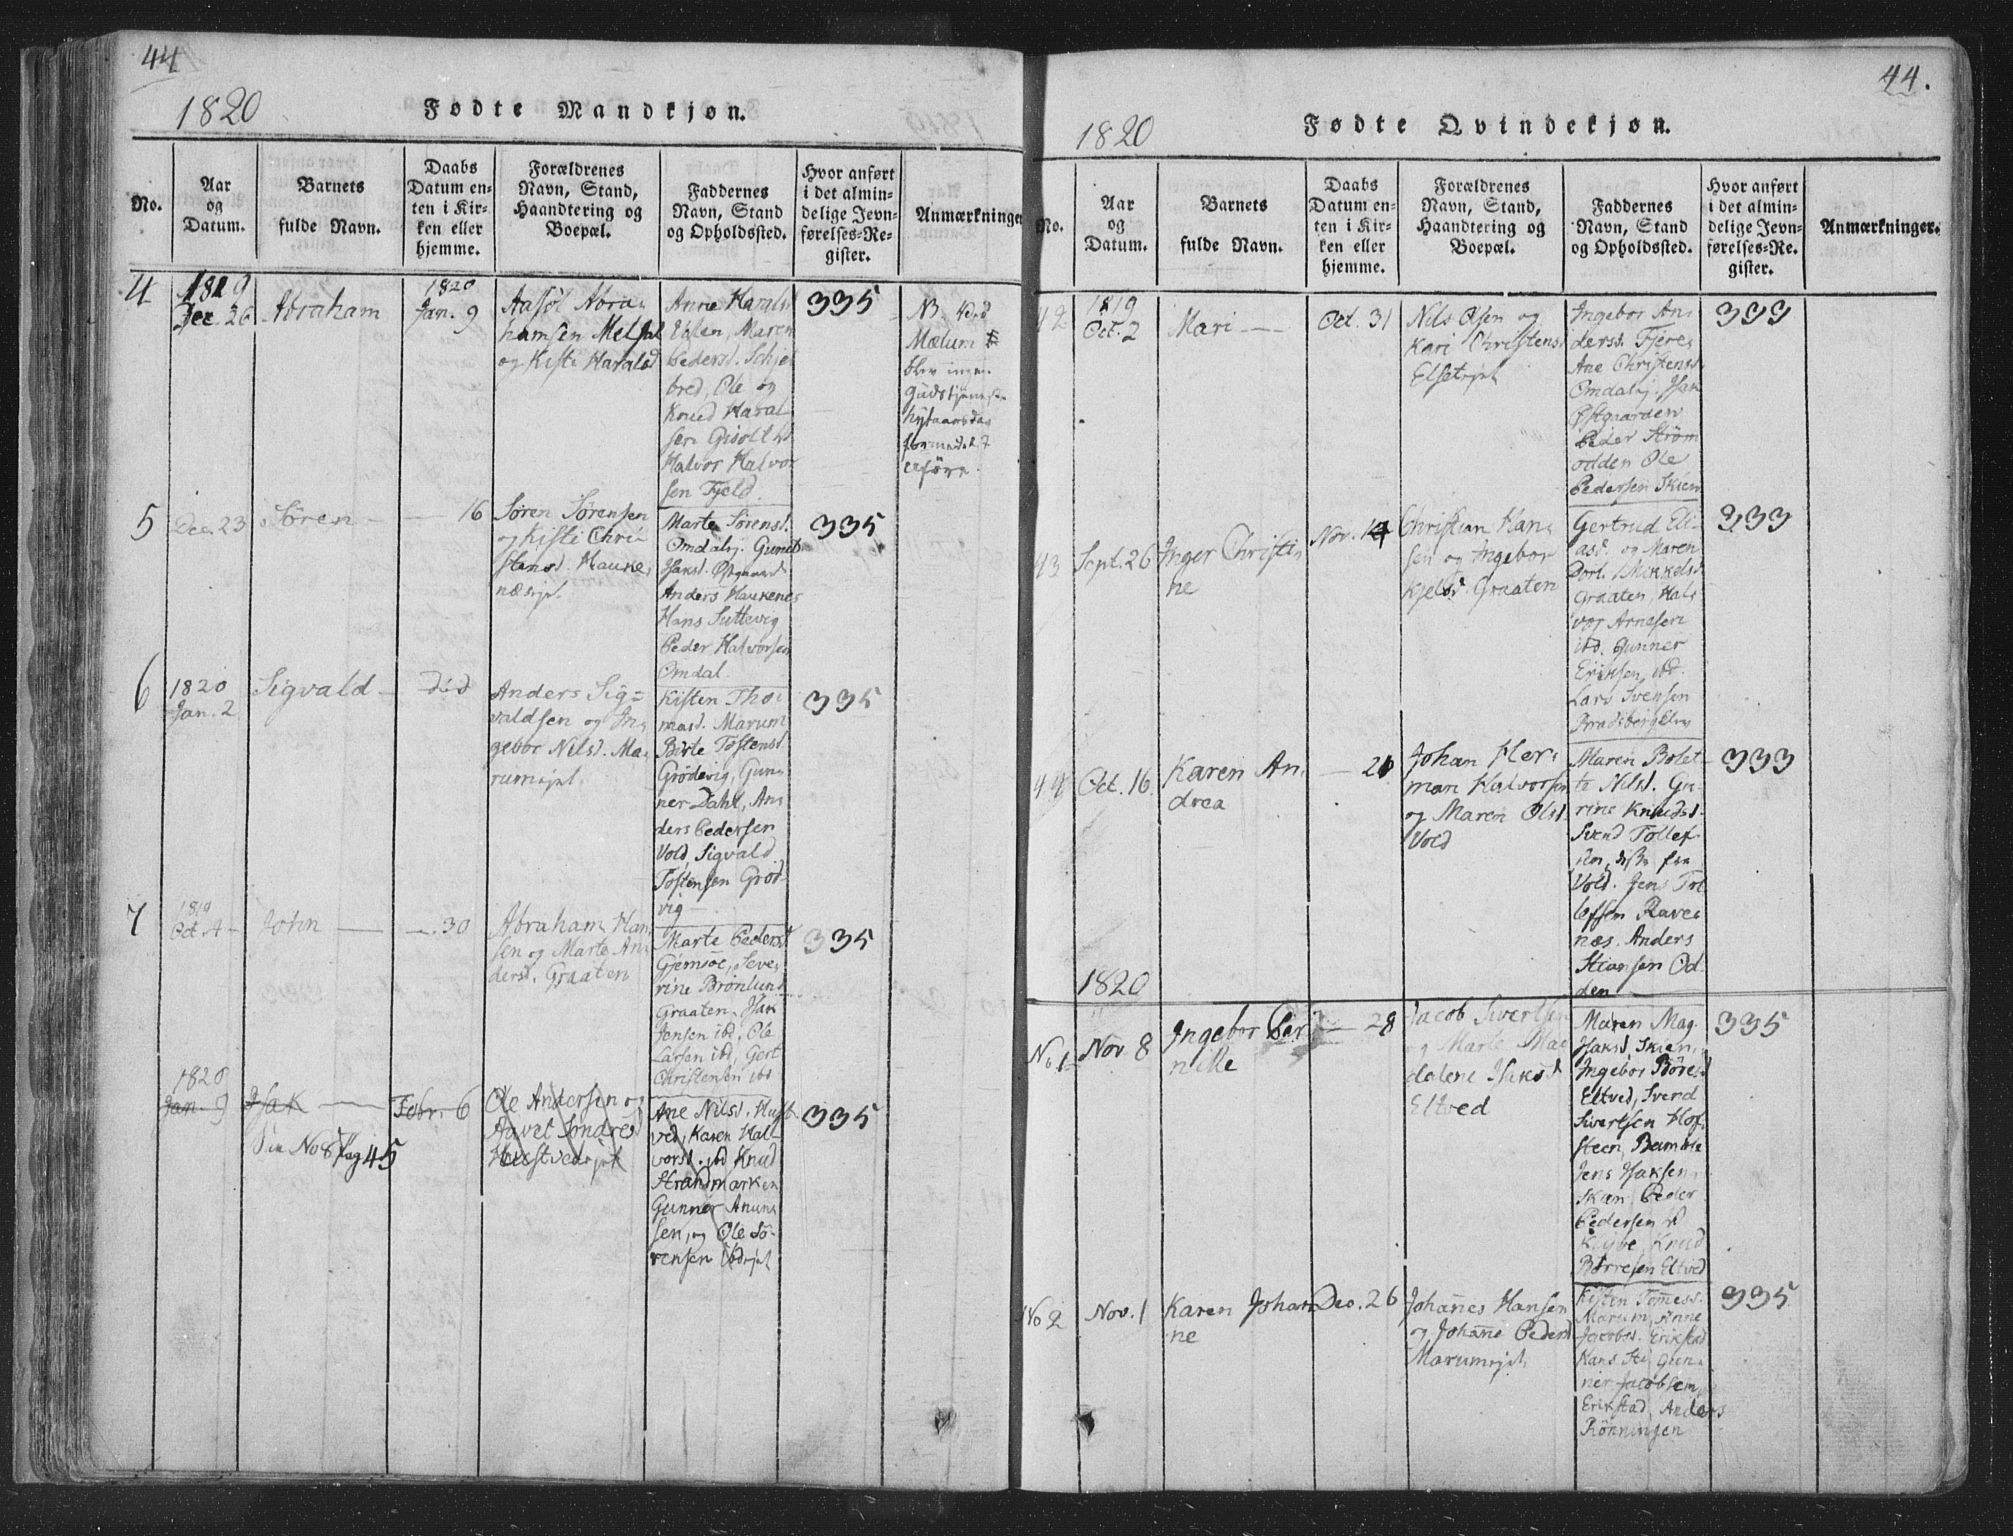 44
1820
Fødte Mandkjøn.
No.
Aar
og
Datum.
Barnets
fulde Navn.
Daabs
Datum en-
ten i Kir-
ken eller
hjemme.
Forældrenes
Navn, Stand,
Haandtering og
Boepæl.
Faddernes
Navn, Stand
og Opholdssted.
Hvor anført
i det almin-
delige Jevn-
førelses-Re-
gister.
Anmærkninger
4
1819
Dec. 26
Abraham
1820
Jan. 9
hamsen
og Kisti Haralsd
Anne Haralsd
Maren
Pedersd.
bred, Ole og
Knud Haral
sen
Halvor Halvor
sen Fjeld.
335
NB. Ved
Mælum
blev ingen
Gudstjeneste
Nytaarsdag
5
Dec. 23
Søren
16
Søren Sørensen
og Kisti Chri-
stensd. Hauke
næsejet.
Marte Sørensd.
Omdalej. Gunil
Isaksd. Østgaard
Anders Haukenes
Hans Suttevig
Peder Halvorsen
Omdal.
335
6
1820
Jan. 2
Sigvald
did
Anders Sig=
valdsen og In
gebor Nilsd. Ma
rumejet.
Kisten Tho
masd. Marum
Birte Tostensd.
Grødevig, Gun
ner Dahl, An
ders Pedersen
Vold, Sigvald
Tostensen Grød
vig
335
7
1819
Oct. 4
John
30
Abraham Han
sen og Marte An
dersd. Graaten
Marte Pedersd
Gjemsøe, Seve
rine Brønlund
Graaten, Isak
Jensen ibd, Ole
Larsen ibd, Gert
Christensen ibd
335
1820
Jan. 9
Isak
Febr. 6
No 8 Pag 45
Ole Andersen og
Aavet Sondresd
Ane Nilsd. Hust
ved, Karen Hal-
vorsd. ibd Knud
Strandmarken
Gunner Anun
sen, og Ole Sø-
rensen ibd ejet
335
44.
1820
Fødte Qvindekjøn.
No.
Aar
og
Datum.
Barnets
fulde Navn.
Daabs
Datum en-
ten i Kir-
ken eller
hjemme.
Forældrenes
Navn, Stand,
Haandtering og
Boepæl.
Faddernes
Navn, Stand
og Opholdssted.
Hvor anført
i det almin-
delige Jevn-
førelses-Re-
gister.
Anmærkninger.
42
1819
Oct. 2
Mari
Oct. 31
Nils Olsen og
Kari Christensd
Elsetejet
Ingebor An
dersd. Fjere
Ane Christensd
Omdalej. Isak
Østgaarden
Peder Strøm
odden Ole
Pedersen Skien
333
43
Sept. 26
Inger Christi
ne
Nov. 14
Christian Han
sen og Ingebor
Kjelsd. Graaten
Gertrud Eli-
asd. og Maren
Dort. Mikkelsd
Graaten, Hal
vor Arnesen
ibd. Gunner
Eriksen, ibd.
Lars Svensen
333
44
Oct. 16
Karen An
drea
21
Johan Her
man Halvorsen
og Maren Olsd.
Vold
Maren Bolet
te Nilsd. Gu
rine Knudsd.
Svend Tollef
sen, disse fra
Vold. Jens Tol
lefsen Rave
næs. Anders
Stiansen Od
den
333
1820
No 1
Nov 8
Ingebor Per
nille
28
Jacob Sivertsen
og Marte Mag
dalene Isaksd
Eltved
Maren Mag.
Isaksd Skien,
Ingebor Børresd
Eltved, Svend
Sivertsen Hof
steen, Bamble
Jens Isaksen,
Skien, Peder
Pedersen
Knud
Børresen Eltved
335
No 2
Nov. 1
Karen Johan
ne
Dec. 26
Johannes Hansen
og Johanne Pedersd
Marumejet
Kisten
Marum, Anne
Jacobsd. Erikstad
Hans Sti, Gun
ner Jacobsen
Erikstad, Anders
Rønningen
335